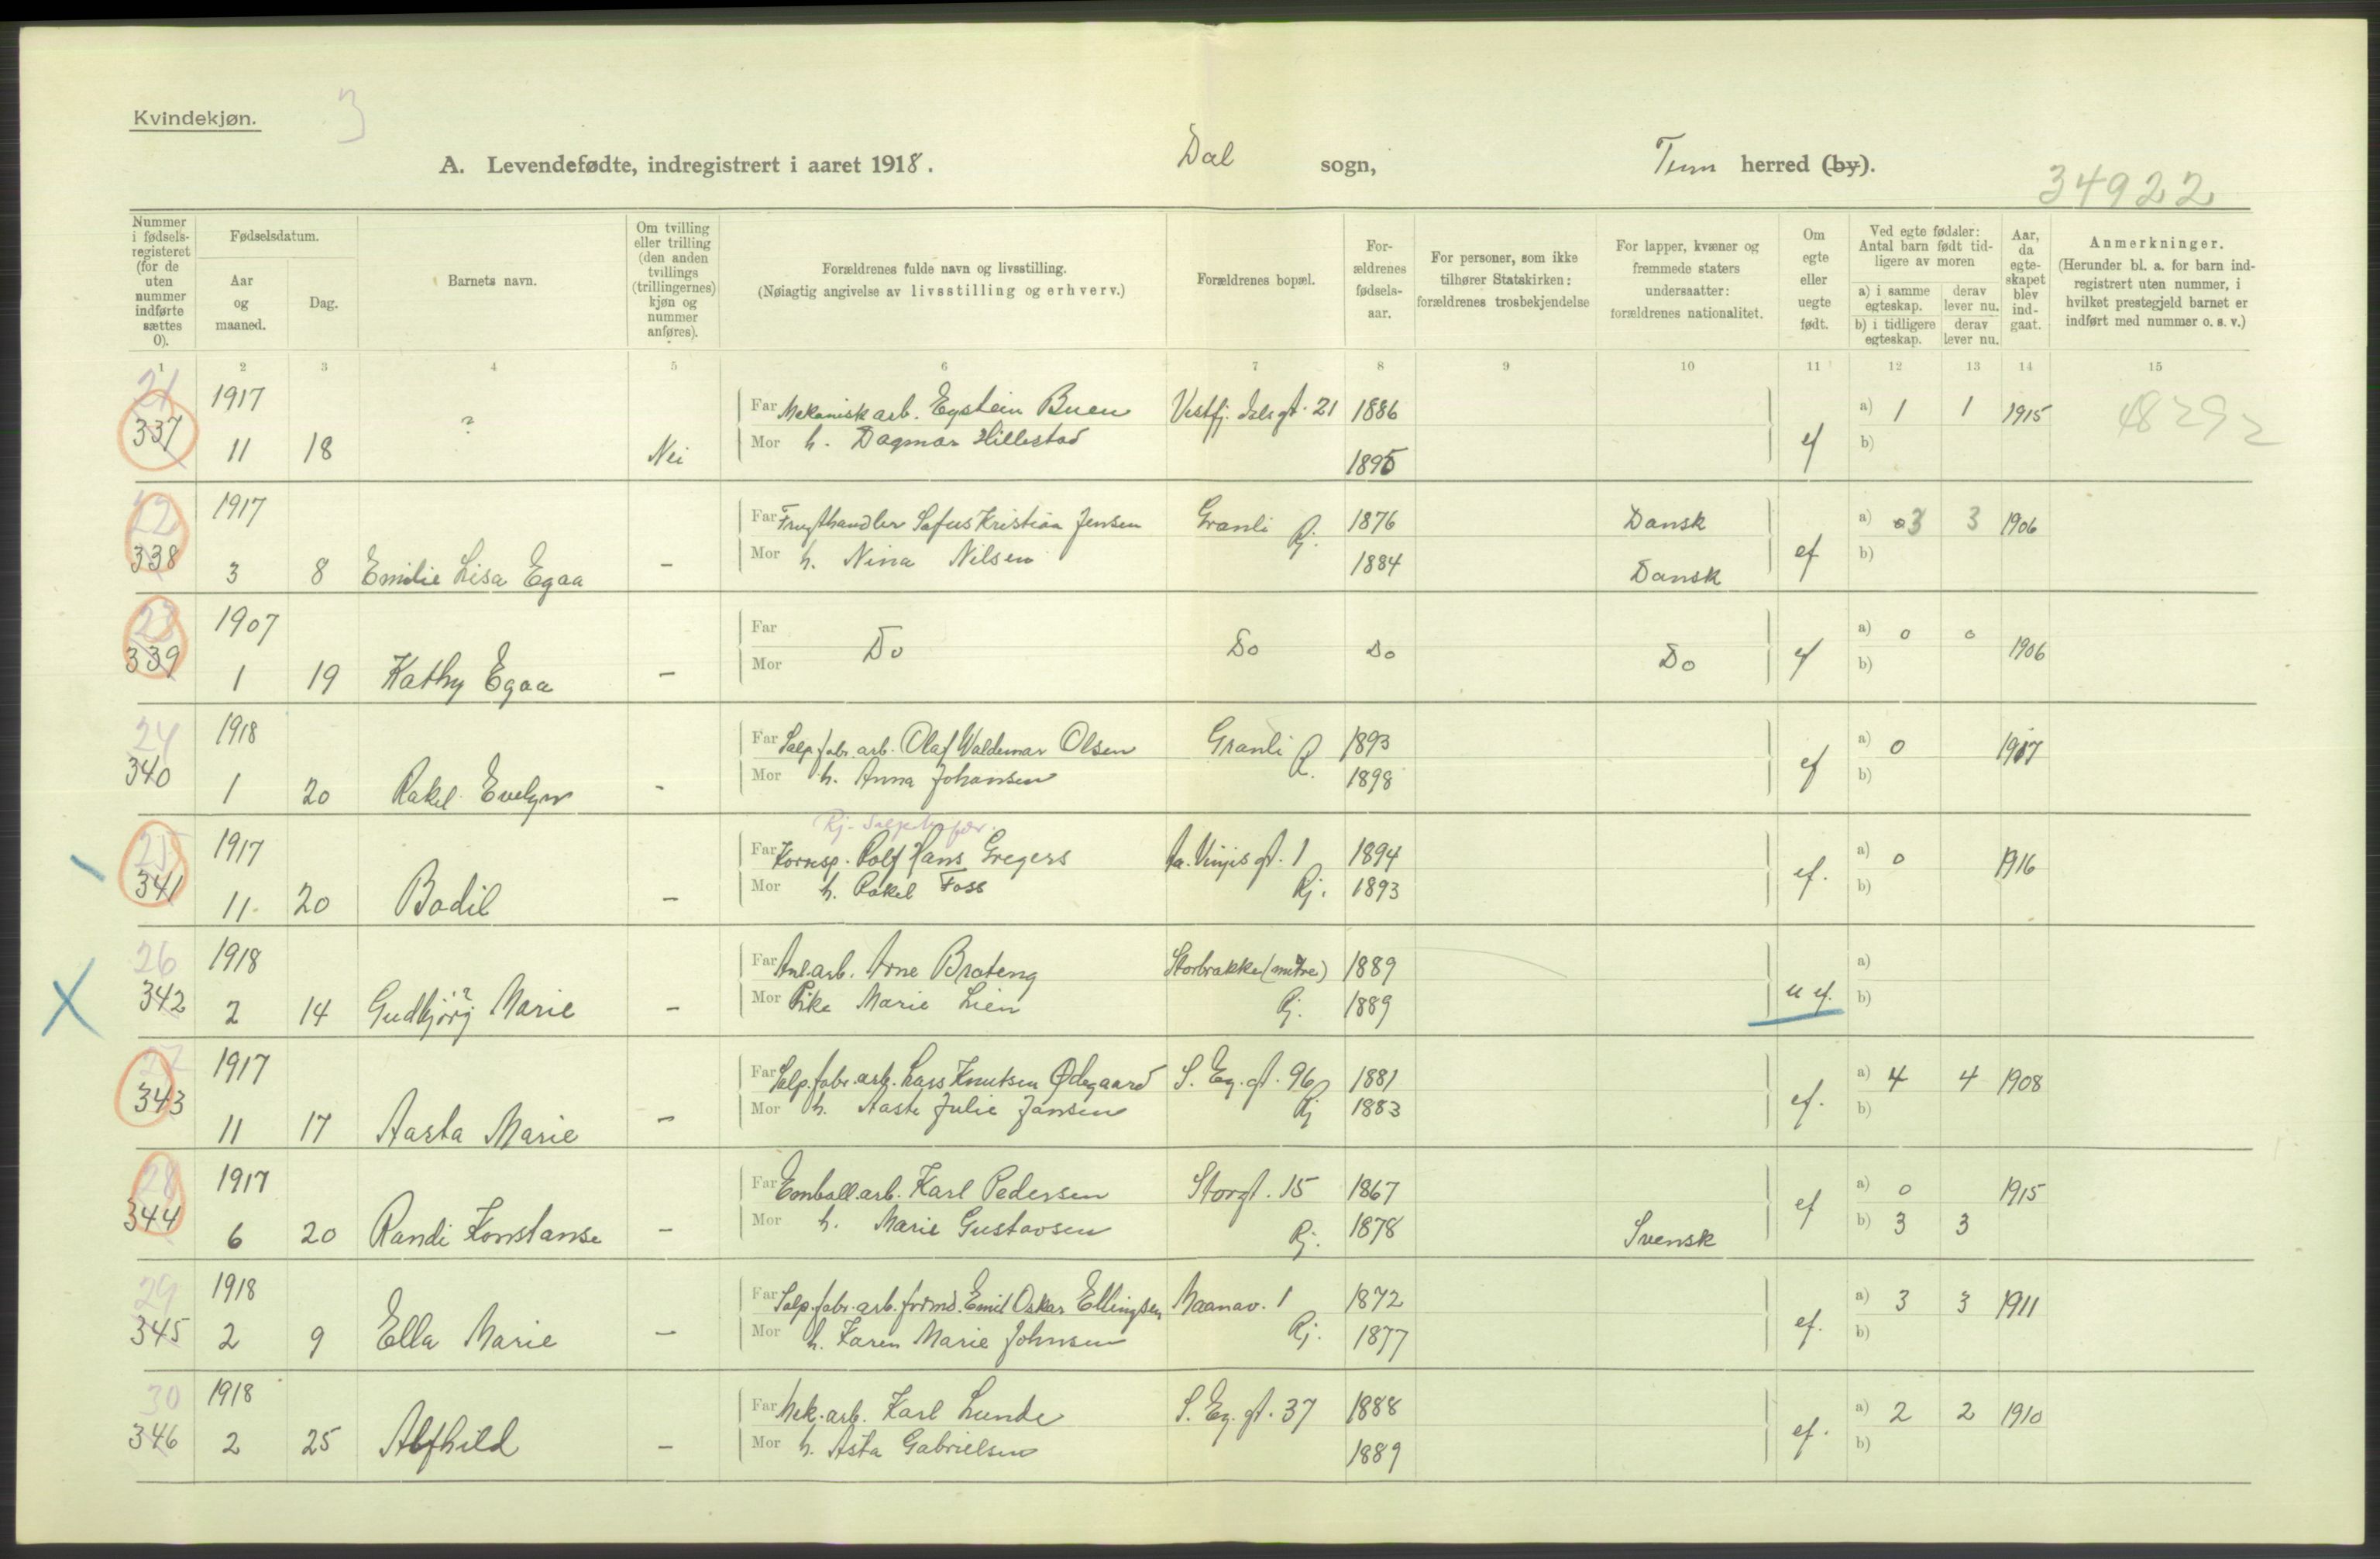 Kvindekjøn.
3
A. Levendefødte, indregistrert i aaret 1918.
Dal sogn,
Tinn herred (by).
34922
Nummer i fødsels-registeret (for de uten nummer indførte sættes 0).
Fødselsdatum.
Aar og maaned.
Dag.
Barnets navn.
Om tvilling eller trilling (den anden tvillings (trillingernes) kjøn og nummer anføres).
Forældrenes fulde navn og livsstilling.
(Nøiagtig angivelse av livsstilling og erhverv.)
Forældrenes bopæl.
For-ældrenes fødsels-aar.
For personer, som ikke tilhører Statskirken: forældrenes trosbekjendelse
For lapper, kvæner og fremmede staters undersaatter: forældrenes nationalitet.
Om egte eller uegte født.
Ved egte fødsler: Antal barn født tid-ligere av moren
a) i samme egteskap.
derav lever nu.
b) i tidligere egteskap.
derav lever nu.
Aar, da egte-skapet blev ind-gaat.
Anmerkninger.
(Herunder bl. a. for barn ind-registrert uten nummer, i hvilket prestegjeld barnet er indført med nummer o. s. v.)
1 2 3 4 5 6 7 8 9 10 11 12 13 14 15
21 1917 Far Mekanisk arb. Eystein Buen Vestfj. dals gt. 21 1886 a) 1 1 1915 48292
337 11 18 ? Nei Mor h. Dagmar Hillestad 1895 ef b)
22 1917 Far Frugthandler Sofus Kristian Jensen Granli Rj. 1876 Dansk a) 3 3 1906
338 3 8 Emilie Lisa Egaa - Mor h. Nina Nilsen 1884 Dansk ef b)
23 1907 Far Do Do Do Do a) 0 0 1906
339 1 19 Kathy Egaa - Mor ef b)
24 1918 Far Salp. fabr. arb. Olaf Waldemar Olsen Granli R. 1893 a) 0 1917
340 1 20 Rakel Evelyn - Mor h. Anna Johansen 1898 ef b)
25 1917 Far Korresp. Rolf Hans Gregers Aa. Vinjes gt. 1 1894 a) 0 1916
341 11 20 Bodil - Mor h. Rakel Foss Rj. 1893 ef. b)
26 1918 Far Anl. arb. Arne Brateng Storbrakke (midtre) 1889 a)
342 2 14 Gudbjörg ? Marie - Mor Pike Marie Lien Rj. 1889 u ef. b)
27 1917 Far Salp. fabr. arb. Lars Knutsen Ødegaard S. Ey. gt. 96 1881 a) 4 4 1908
343 11 17 Aasta Marie - Mor h. Aasta Julie Jansen Rj 1883 ef. b)
28 1917 Far Emball. arb. Karl Pedersen Storgt. 15 1867 a) 0 1915
344 6 20 Randi Konstanse - Mor h. Marie Gustavsen Rj. 1878 Svensk ef b) 3 3
29 1918 Far Salp. fabr. arb. formd. Emil Oskar Ellingsen Maanav. 1 1872 a) 3 3 1911
345 2 9 Ella Marie - Mor h. Karen Marie Johnsen Rj. 1877 ef. b)
30 1918 Far Mek. arb. Karl Lunde S. Ey. gt. 37 1888 a) 2 2 1910
346 2 25 Alfhild - Mor h. Asta Gabrielsen 1889 ef. b)